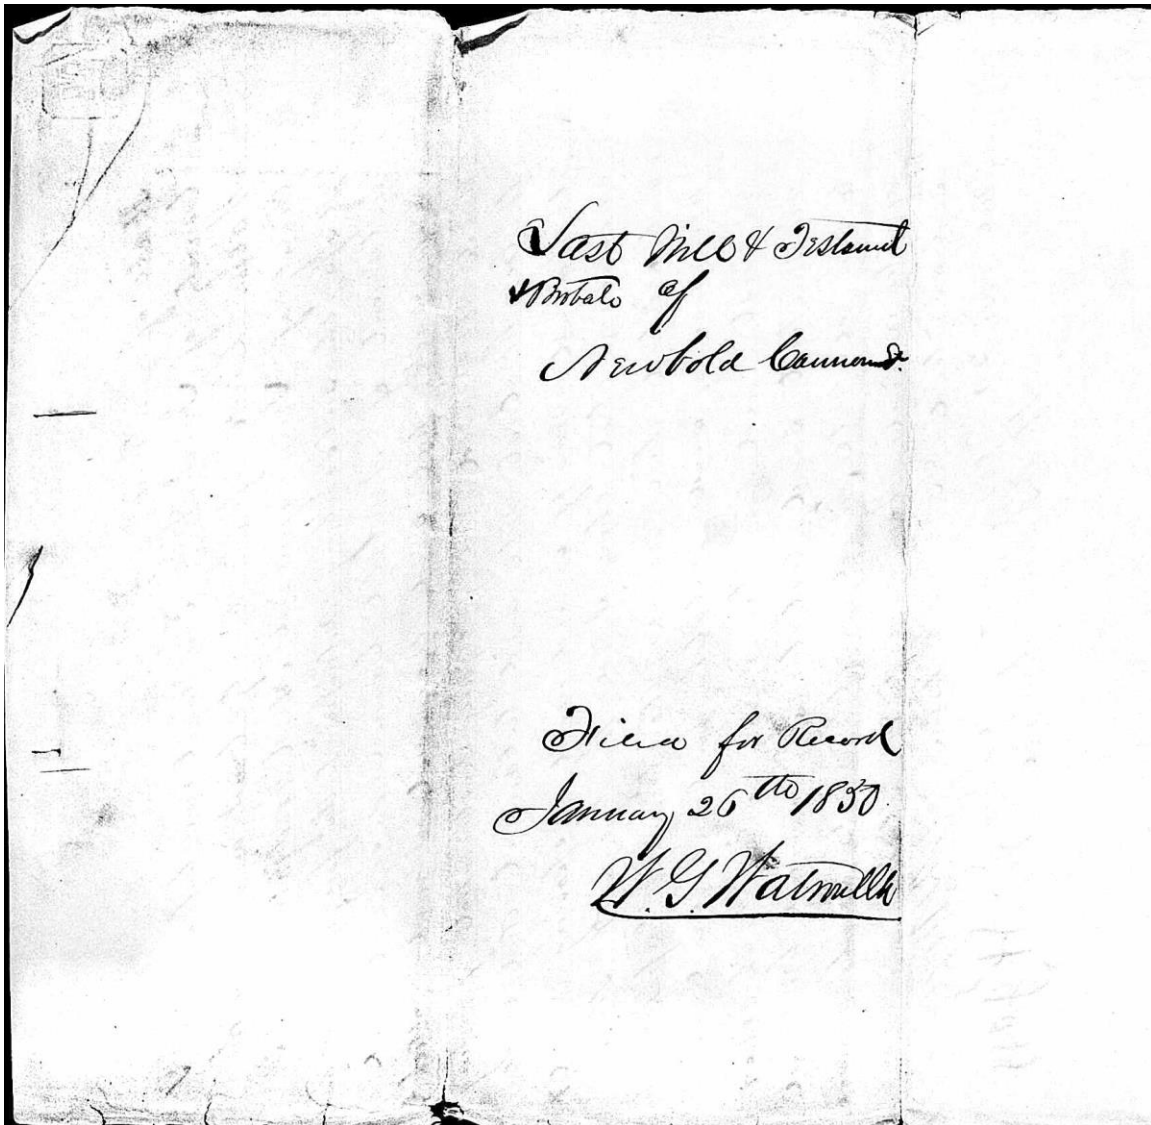 Last Will & Testament
& Probate of
Newbold Cannon
Filed for Record
January 26th 1850
W. G.